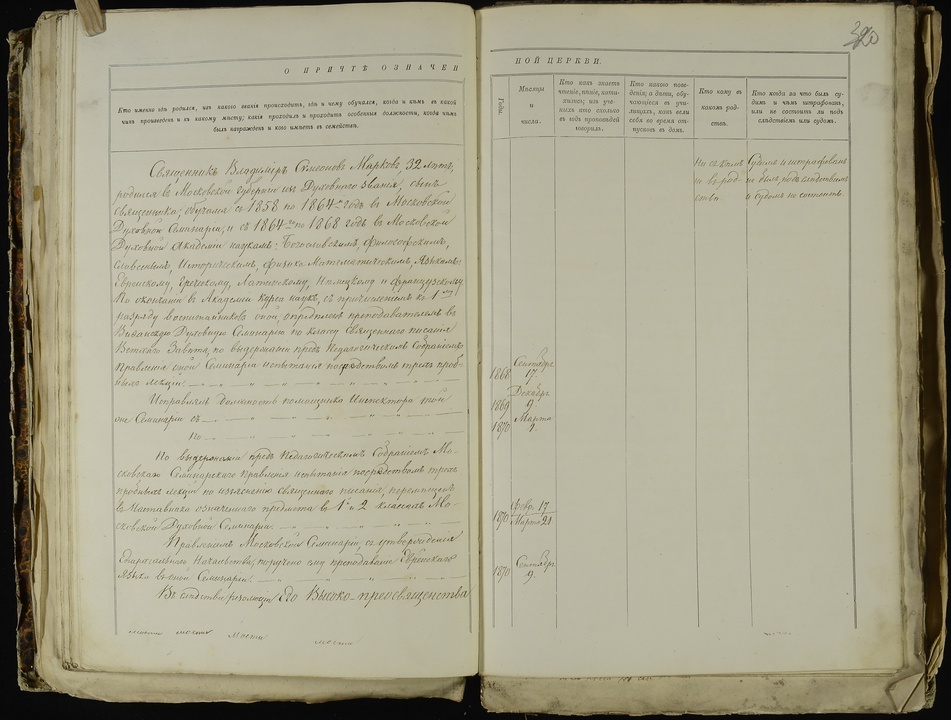 320
О ПРИЧТѢ ОЗНАЧЕН
НОЙ ЦЕРКВИ.
Кто именно гдѣ родился, изъ какого званія происходитъ, гдѣ и чему обучался, когда и кѣмъ въ какой
чинъ произведенъ и къ какому мѣсту; какія проходилъ и проходитъ особенныя должности, когда чѣмъ
былъ награжденъ и кого имѣетъ въ семействѣ.
Священникъ Владиміръ Симеоновъ Марковъ, 32 лѣтъ,
родился въ Московской губерніи изъ Духовнаго званія, сынъ
священника; обучался съ 1858 по 1864й годъ въ Московской
Духовной Семинаріи; и съ 1864го по 1868 годъ въ Московской
Духовной Академіи наукамъ: Богословскимъ, философскимъ,
словеснымъ, Историческимъ, физико Математическимъ, Языкамъ:
Еврейскому, Греческому, Латинскому, Нѣмецкому и французскому.
По окончаніи въ Академіи курса наукъ, съ причисленіемъ къ 1му
разряду воспитанниковъ оной, опредѣленъ преподавателемъ въ
Виѳанскую Духовную Семинарію по классу священнаго писанія
Ветхаго Завѣта, по выдержаніи предъ Педагогическимъ Собраніемъ
Правленія оной Семинаріи испытанія посредствомъ трехъ проб-
ныхъ лекцій.
Исправлялъ должность помощника Инспектора той
же Семинаріи съ
по
По выдержаніи предъ Педагогическимъ Собраніемъ Мо-
сковскаго Семинарскаго Правленія испытанія посредствомъ трехъ
пробныхъ лекцій по изъясненію священнаго писанія, перемѣщенъ
въ наставника означеннаго предмета въ 1й и 2 классахъ Мо-
сковской Духовной Семинаріи.
Правленіемъ Московской Семинаріи, съ утвержденія
Епархіальнаго Начальства, поручено ему преподаваніе Еврейскаго
Языка въ оной Семинаріи.
Въ слѣдствіе резолюціи Его Высоко-преосвященства
Годы.
Мѣсяцы
и
числа.
Кто какъ знаетъ
чтеніе, пѣніе, кати-
хизисъ; изъ уче-
ныхъ кто сколько
въ годъ проповѣдей
говорилъ.
Кто какого пове-
денія; а дѣти, обу-
чающіяся въ учи-
лищахъ, какъ вели
себя во время от-
пусковъ въ домъ.
Кто кому въ
какомъ род-
ствѣ.
Кто когда за что былъ су-
димъ и чѣмъ штрафованъ,
или не состоитъ ли подъ
слѣдствіемъ или судомъ.
Ни съ кѣмъ
не въ род-
ствѣ
Судимъ и штрафованъ
не былъ, подъ слѣдствіемъ
и судомъ не состоитъ.
1868 Сентября
17.
1869 Декабря
9.
1870 Марта
9.
1870 Февр. 17
Марта 21
1870 Сентября
9.